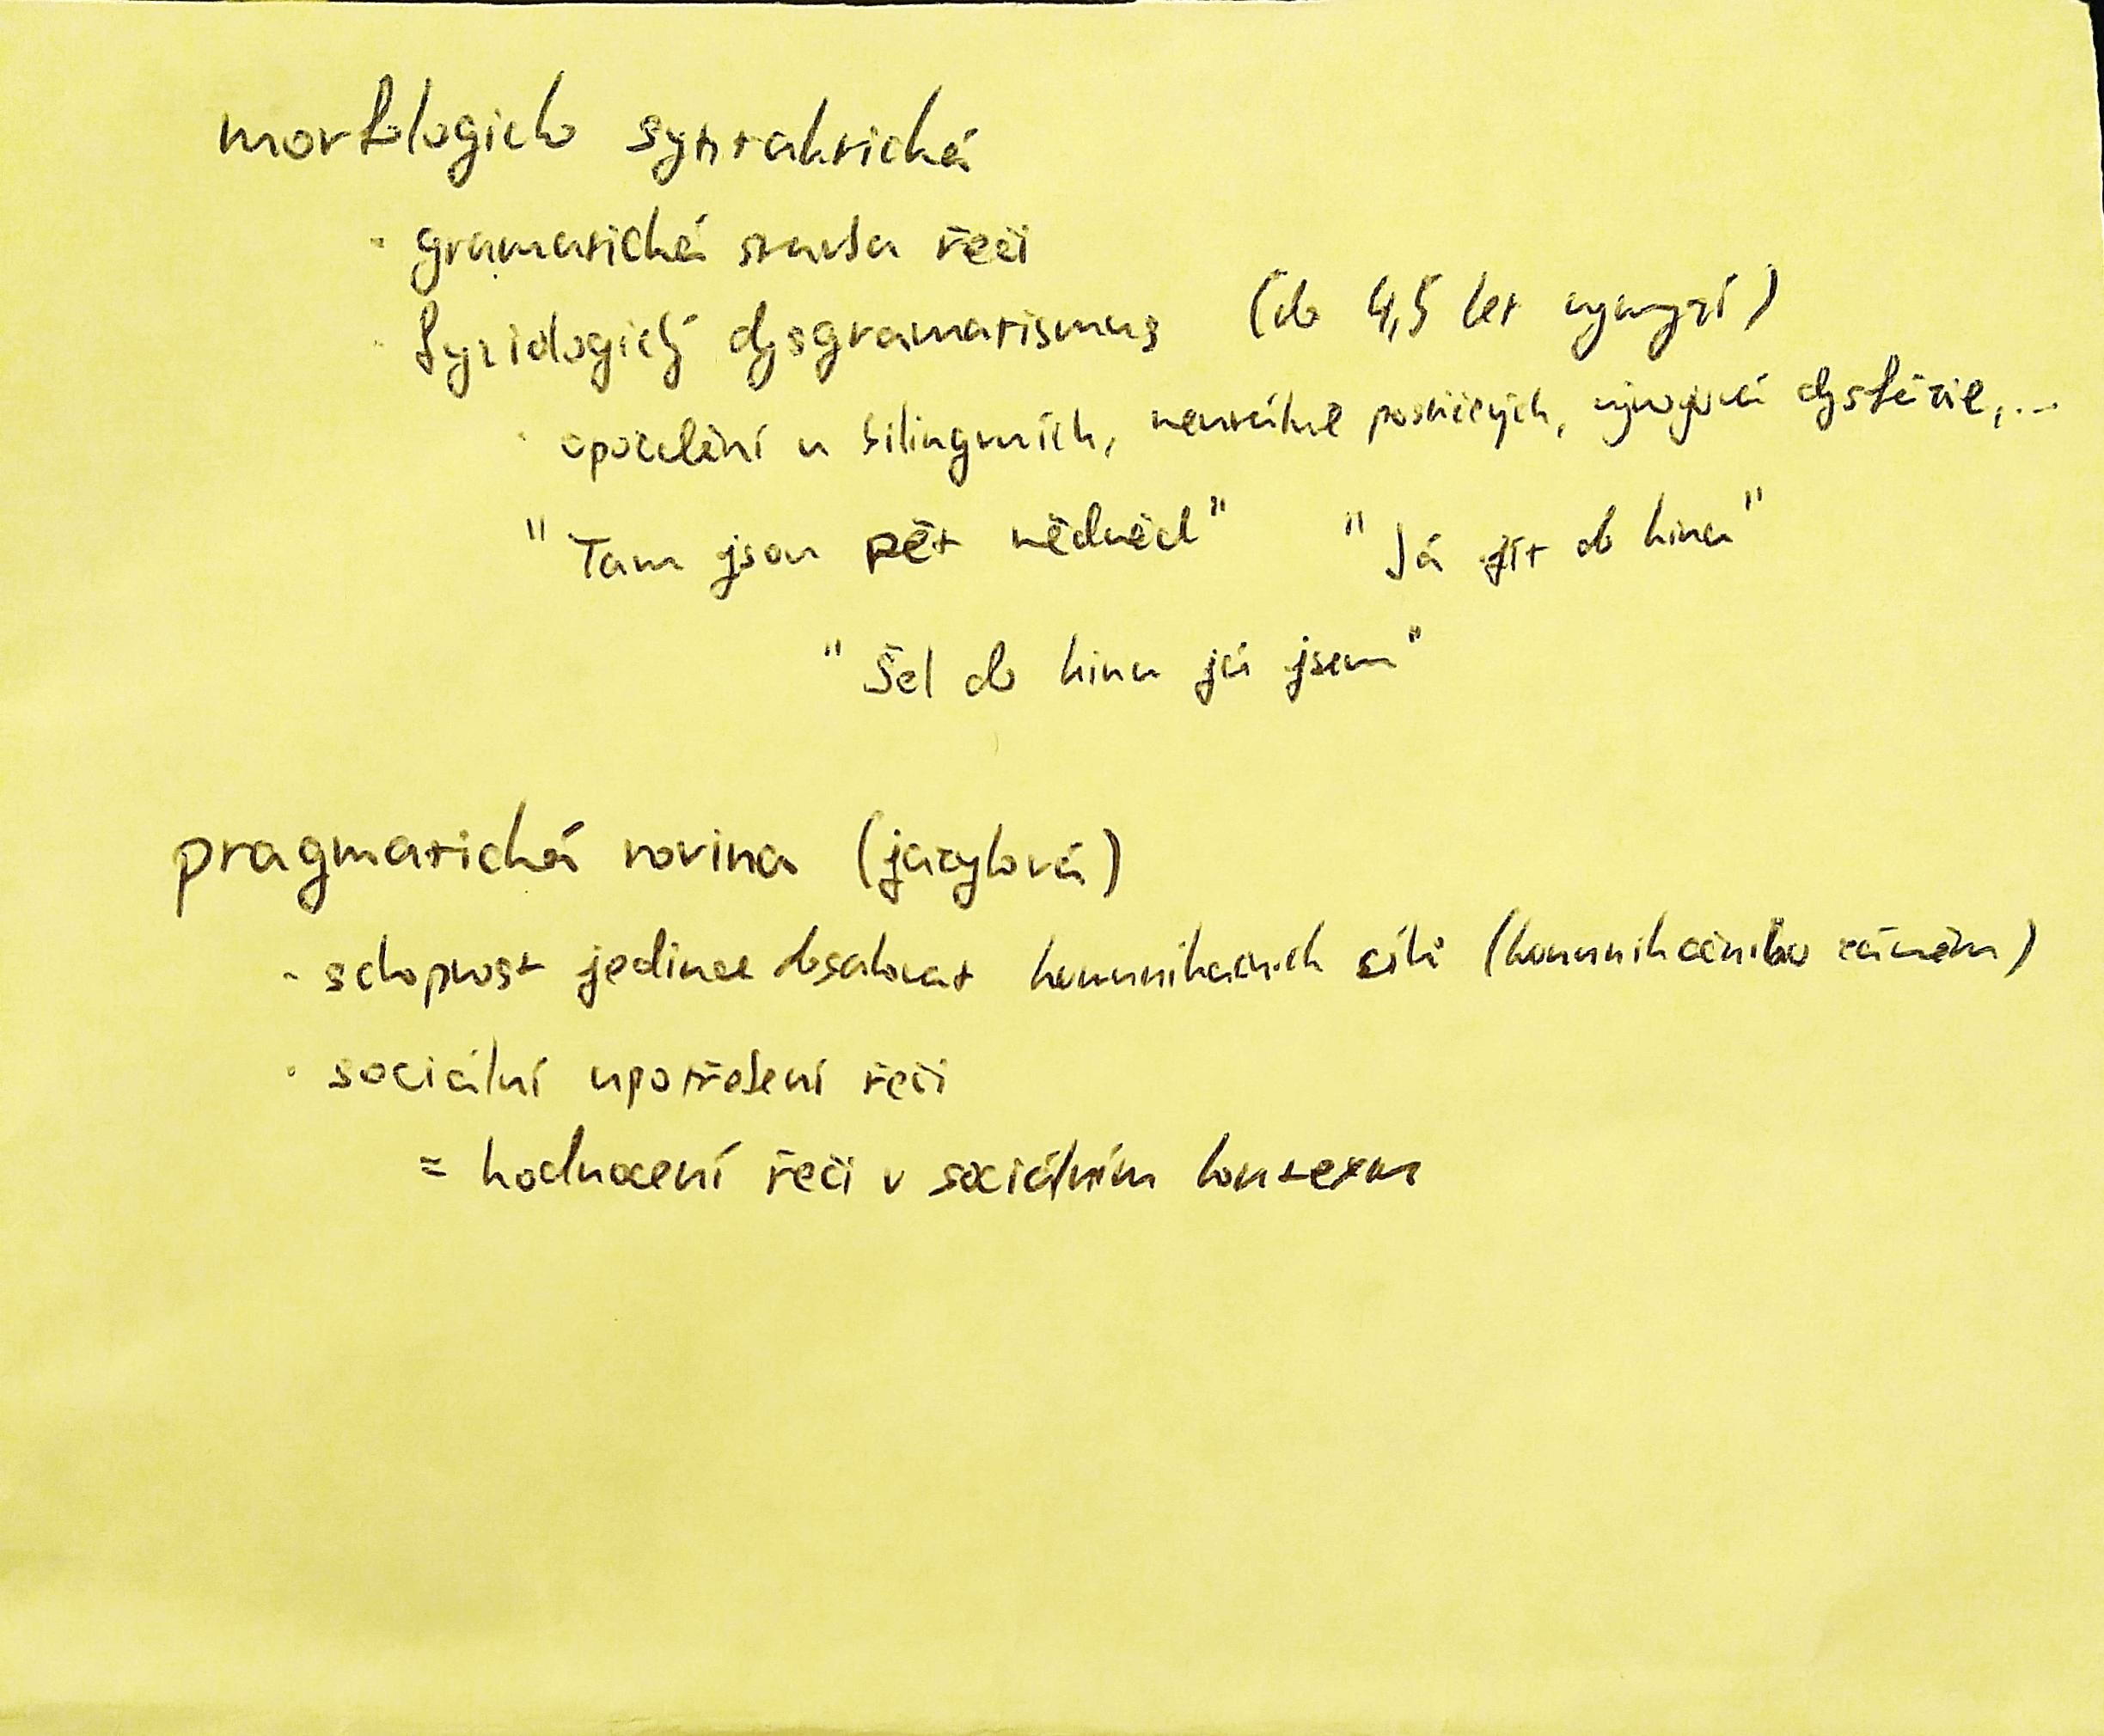 morfologicko syntaktická
· gramatická stavba řeči
· fyziologický dysgramatismus (do 4,5 let vymyzí)
· opoždění u bilingvních, neurálně postižených, vývojová dysfázie,...
"Tam jsou pět mědvěd" "Já jít do kina"
"Šel do kina já jsem"
pragmatická rovina (jazyková)
- schopnost jedince dosahovat komunikačních cílů (komunikačního záměru)
· sociální upotřebení řeči
= hodnocení řeči v sociálním kontextu